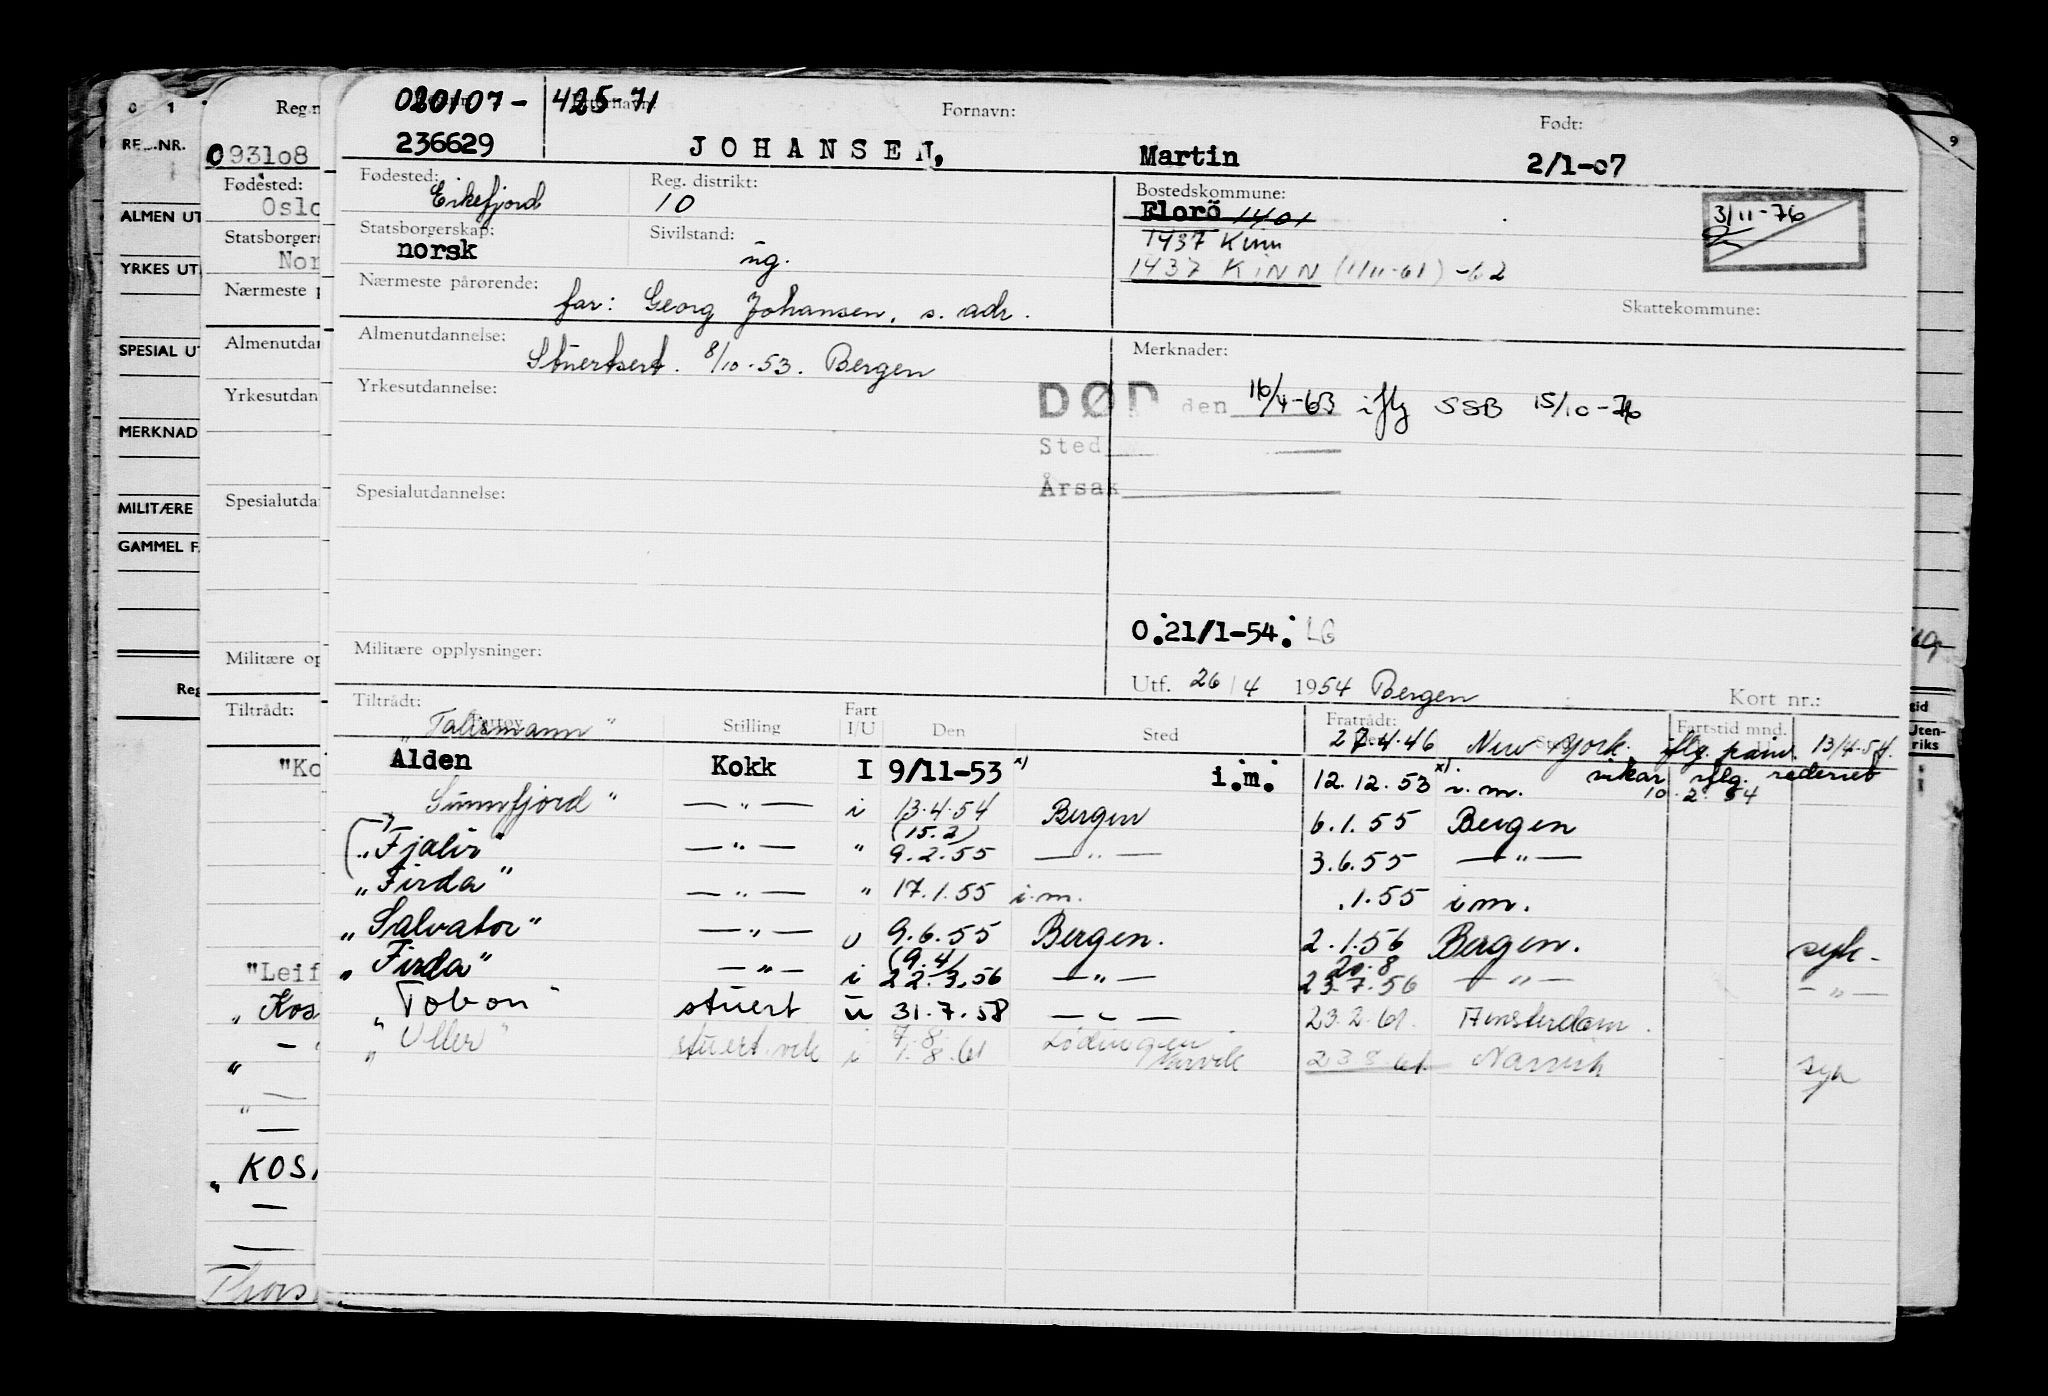 020107- 425-71
Fornavn: Født:
236629 JOHANSEN, Martin 2/1-07
Fødested: Eikefjord Reg. distrikt: 10
Bostedskommune: Florö 1401
Statsborgerskap: norsk Sivilstand: ug.
1437 Kinn
1437 KINN (1/11-61) -62
3/11-76
Nærmeste pårørende: far: Georg Johansen, s. adr.
Skattekommune:
Almenutdannelse: Stuertsert. 8/10-53. Bergen
Merknader:
Yrkesutdannelse:
DØD den 16/4-63 iflg SSB 15/10-76
Sted
Årsak
Spesialutdannelse:
O.21/1-54. LG
Militære opplysninger:
Utf. 26/4 1954 Bergen Kort nr.:
Tiltrådt: Fratrådt:
Fartøy Stilling Fart I/U Den Sted Fartstid mnd.
"Talismann" 27.4.46 New York. iflg. 13/4-54.
Alden Kokk I 9/11-53 x) i.m. 12.12.53 x) i.m. vikar iflg. rederiet
10.2.54
"Sunnfjord" — " — i 13.4.54 Bergen 6.1.55 Bergen
(15.2)
"Fjalir" — " — " 9.2.55 — " — 3.6.55 — " —
"Firda" — " — " 17.1.55 i.m. .1.55 i.m.
"Salvator" — " — u 9.6.55 Bergen. 2.1.56 Bergen. syk-
(9.4) 20.8
"Firda" — " — i 22.3.56 — " — 23.7.56 — " — — " —
"Tobon" stuert u 31.7.58 — " — 23.2.61. Amsterdam.
7.8. Lødingen
"Uller" stuert.vik i 7.8.61 Narvik 23.8.61. Narvik syk
0 1
RE...NR.
ALMEN UT
YRKES UT
SPECIAL UT
MERKNAD
MILITÆRE
GAMMEL F
Reg
Reg.n
093108
Fødested:
Oslo
Statsborgers
Nor
Nærmeste p
Almenutdan
Yrkesutdan
Spesialutda
Militære op
Tiltrådt:
"Ko
"Leif
"Kos
"KOS
Thors
9
tid
Uten-
riks